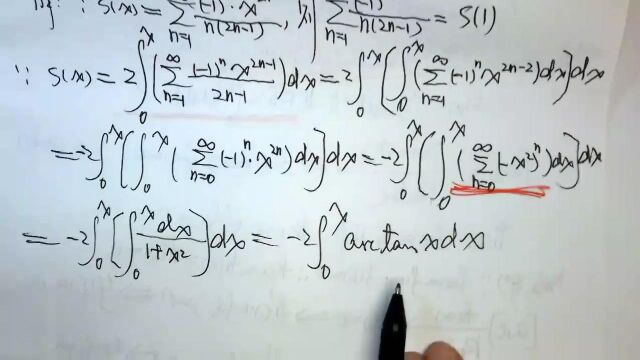 解: ∵ S(x) = ∑_{n=1}^{∞} (-1)^n·x^{2n} / n(2n-1), 则 ∑_{n=1}^{∞} (-1)^n / n(2n-1) = S(1)
∵ S(x) = 2∫_0^x (∑_{n=1}^{∞} (-1)^n x^{2n-1} / 2n-1) dx = 2∫_0^x [∫_0^x (∑_{n=1}^{∞} (-1)^n x^{2n-2}) dx] dx
= -2∫_0^x [∫_0^x (∑_{n=0}^{∞} (-1)^n·x^{2n}) dx] dx = -2∫_0^x [∫_0^x (∑_{n=0}^{∞} (-x²)^n) dx] dx
= -2∫_0^x [∫_0^x dx / 1+x²] dx = -2∫_0^x arctan x dx